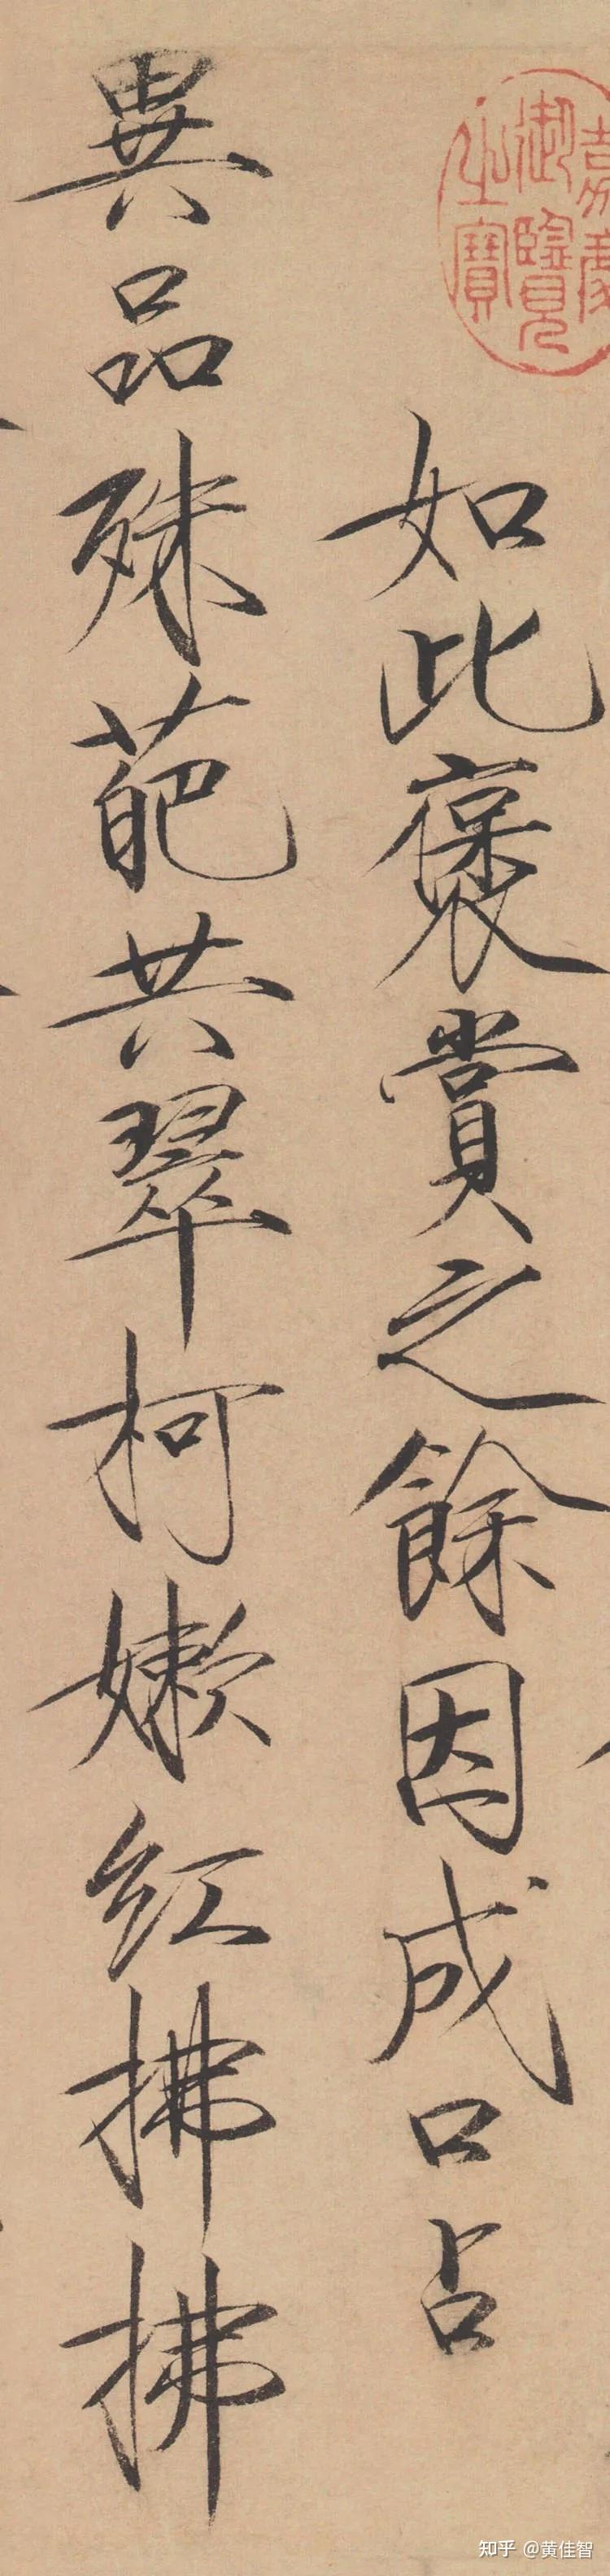 嘉慶
御覽
之寶
如此褒賞之餘因成口占
異品殊葩共翠柯嫩紅拂拂
知乎 @黄佳智